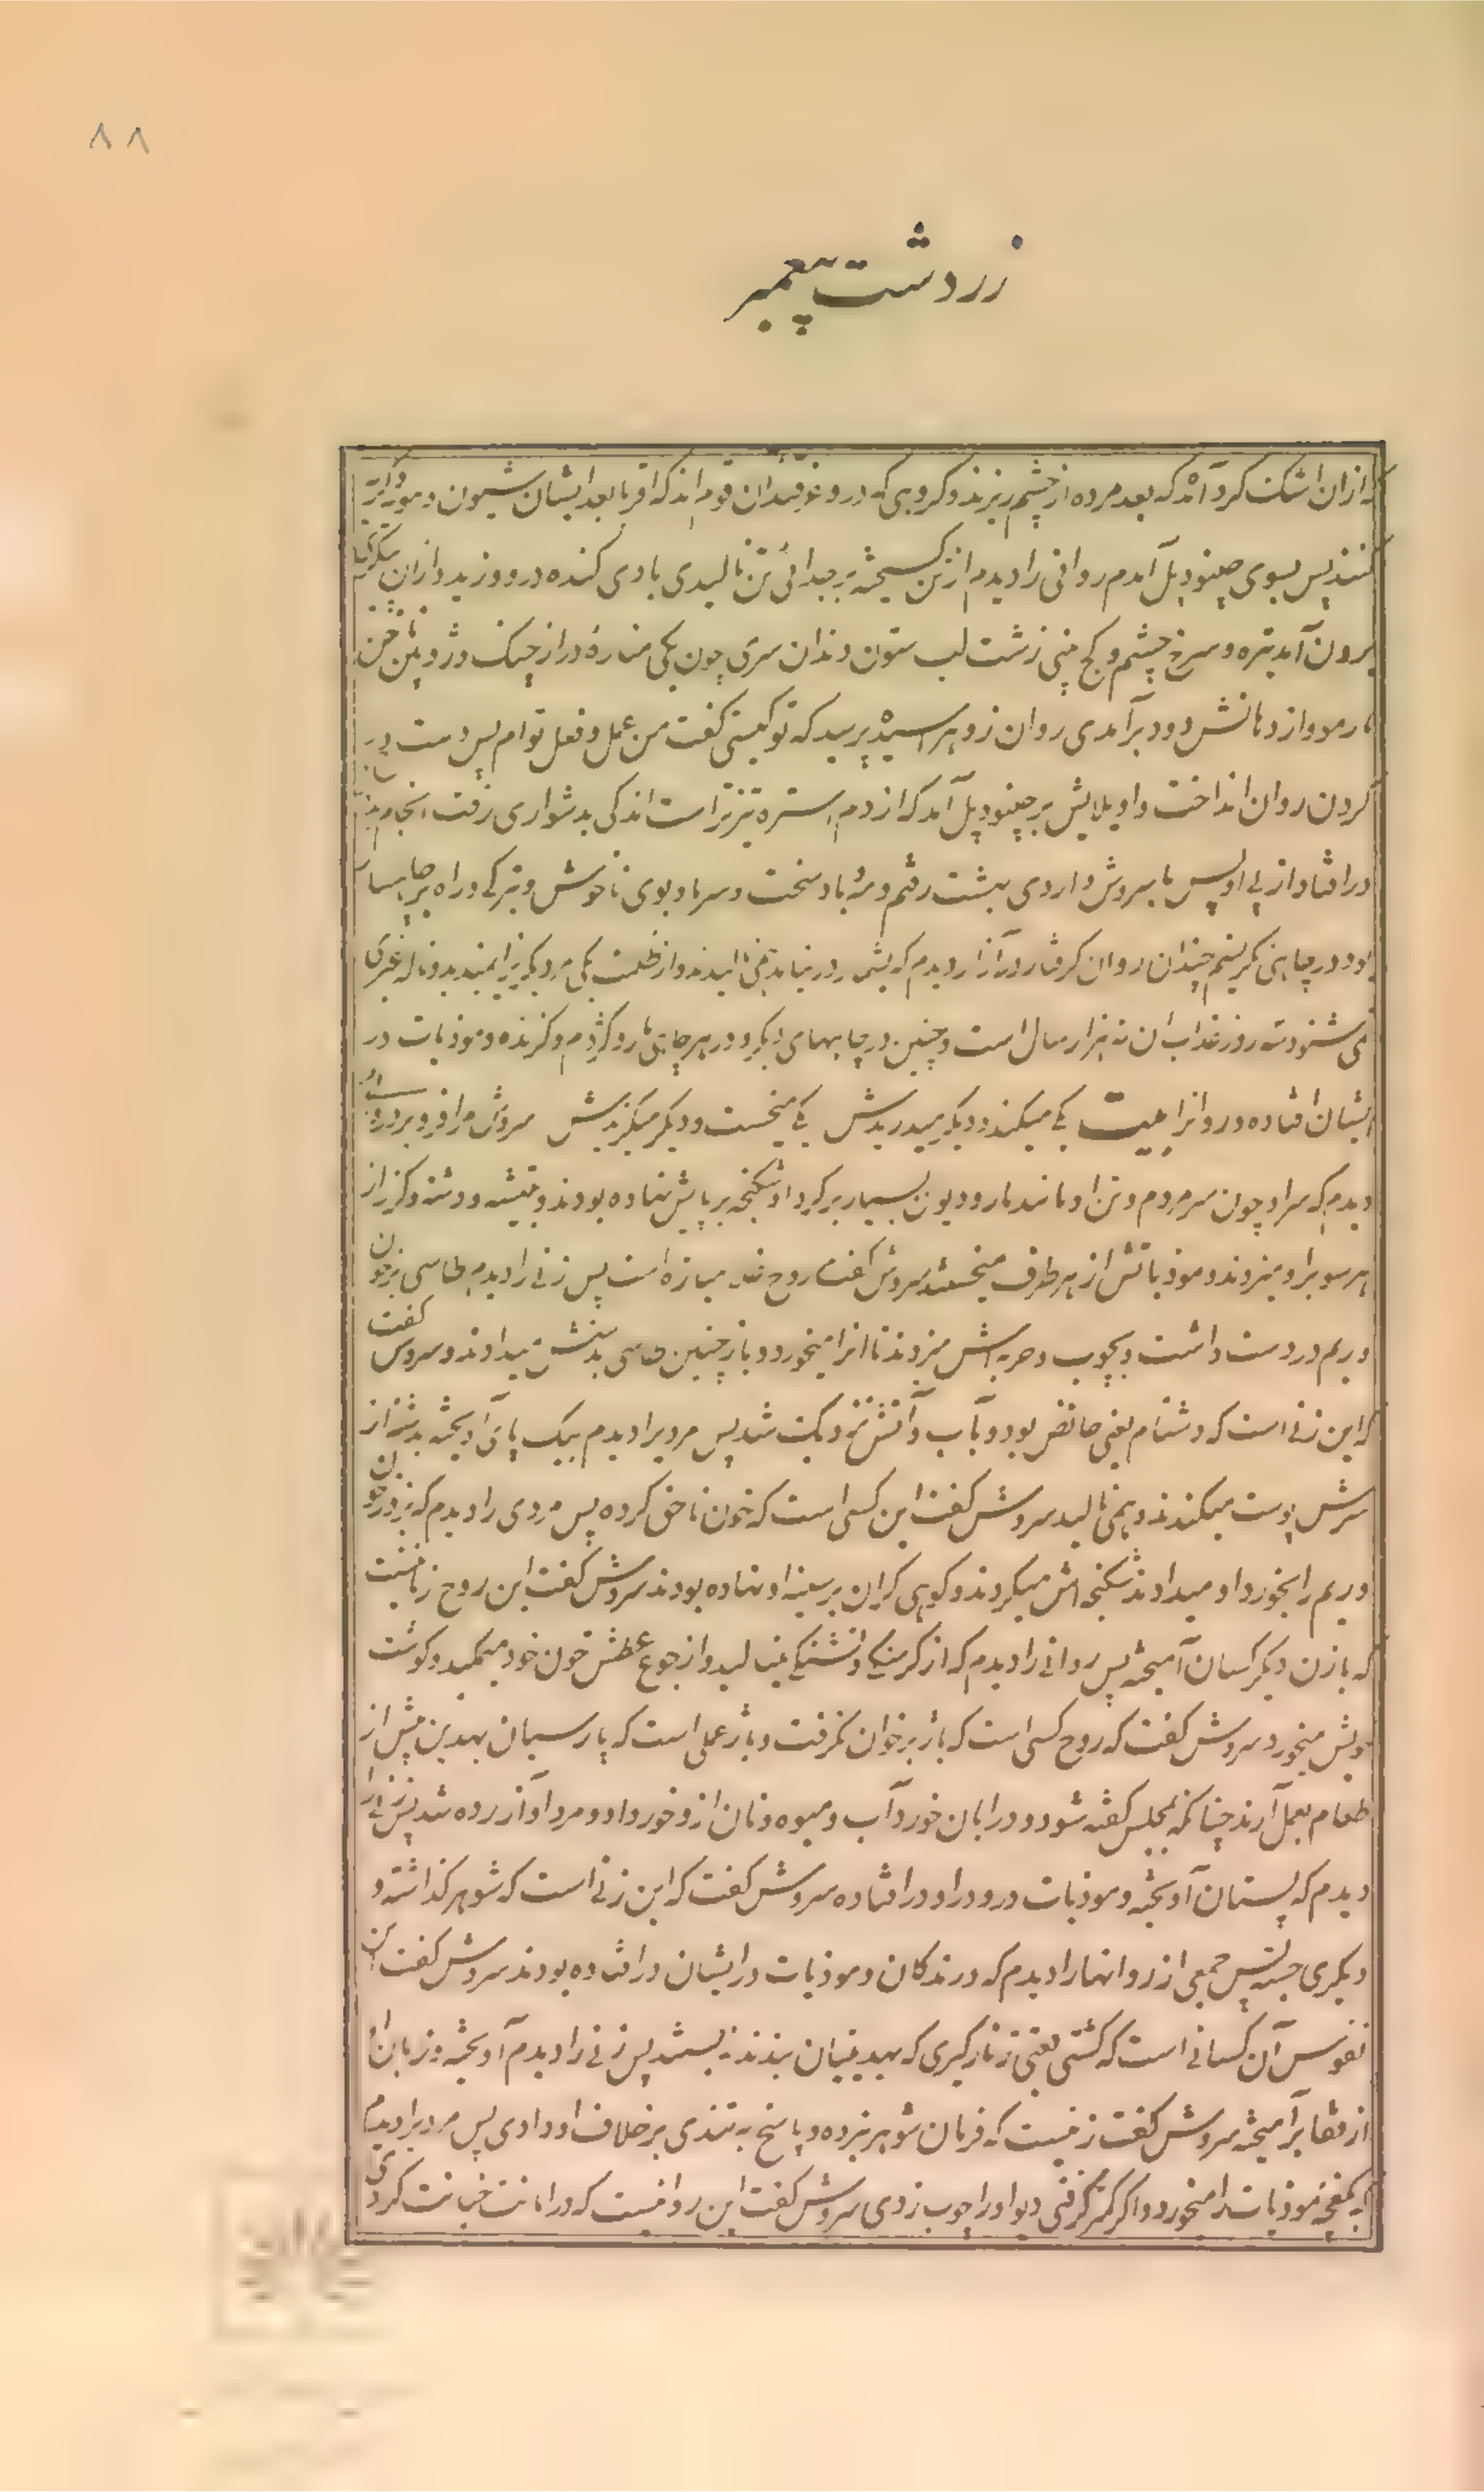 ۸۸
زردشت پیغمبر
که ازان اشک گرد آمد که بعد مرده از چشم ریزند و گروهی که درو غرقه‌اند آن قوم‌اند که اقربا بعد ایشان شیون و مویه
کنند پس بسوی چینود پل آمدم روانی را دیدم از تن گسیخته بر جدائی تن نالیدی بادی گنده درو وزید و ازان
برون آمد تیره و سرخ چشم و کج بینی زشت لب ستون دندان سری چون یکی مناره دراز چنگ و ناخن
مار مو و از دهانش دود برآمدی روان زو هراسیده پرسید که تو کیستی گفت من عمل و فعل توام پس دست در
گردن روان انداخت واویلایش بر چینود پل آمد که از دم استره تیزتر است اندکی بدشواری رفت انجام
در افتاد از پی او پس با سروش و اردی بهشت رفتم و مرا باد سخت و سرما و بوی ناخوش و تیرگی در راه پر چاهسار
بود در چاهی نگریستم چندان روان گرفتار در آزار دیدم که بشمر در نیاید همی نالیدند و از ظلمت یکی مر دیگریرا نمیدید و ناله غیری
نمی شنود سه روز عذاب آن نه هزار سال است و همچنین در چاههای دیگر و در هر چاهی مار و کژدم و گزنده و موذیات در
ایشان افتاده و روانرا بیت یکی میکند و دیگر میدریدش یکی میخست و دیگر میگزیدش سروش مرا فرو برد
دیدم که سر او چون سر مردم و تن او مانند مار و دیوان بسیار بر گرد او شکنجه بر پایش نهاده بودند و تیشه و دشنه و گرز از
هر سو برو میزدند و موذیاتش از هر طرف میخستند سروش گفت روح مبازه است پس زنی را دیدم طاسی پر خون
و ریم در دست داشت و بچوب و حربه‌اش میزدند تا آنرا میخورد و باز چنین طاسی بدستش میدادند و سروش گفت
که این زنی است که دشتام یعنی حائض بود و بآب و آتش نزدیک شد پس مردیرا دیدم بیک پای آویخته بدشنه از
سرش پوست میکندند و همی نالید سروش گفت این کسی است که خون ناحق کرده پس مردی را دیدم که بزور خون
و ریم را بخورد او میدادند شکنجه‌اش میکردند و کوهی گران بر سینه او نهاده بودند سروش گفت این روح زانیست
که با زن دیگر کسان آمیخته پس روانی را دیدم که از گرسنگی و تشنگی مینالید و از جوع عطش خون خود میمکید و گوشت
خویش میخورد سروش گفت که روح کسی است که باژ بر خوان نگرفت و باژ عملی است که پارسیان بهدین پیش از
طعام بعمل آرند چنانکه بمجلس گفته شود و در ابان خورد آب و میوه و نان ازو خورداد و مرداد آزرده شد پس زنی را
دیدم که پستان آویخته و موذیات درو در افتاده سروش گفت که این زنی است که شوهر گذاشته و
دیگری جسته پس جمعی از روانها را دیدم که درندگان و موذیات در ایشان در افتاده بودند سروش گفت این
نفوس آن کسانی است که کشتی یعنی زنار گبری که بهدینیان بندند نبستند پس زنی را دیدم آویخته و زبان او
از قفا برآمیخته سروش گفت زنیست که فرمان شوهر نبرده و پاسخ به تندی بر خلاف او دادی پس مردیرا دیدم
که بکفچه موذیات را میخورد و اگر کمتر گرفتی دیو او را چوب زدی سروش گفت این روانیست که در امانت خیانت کردی